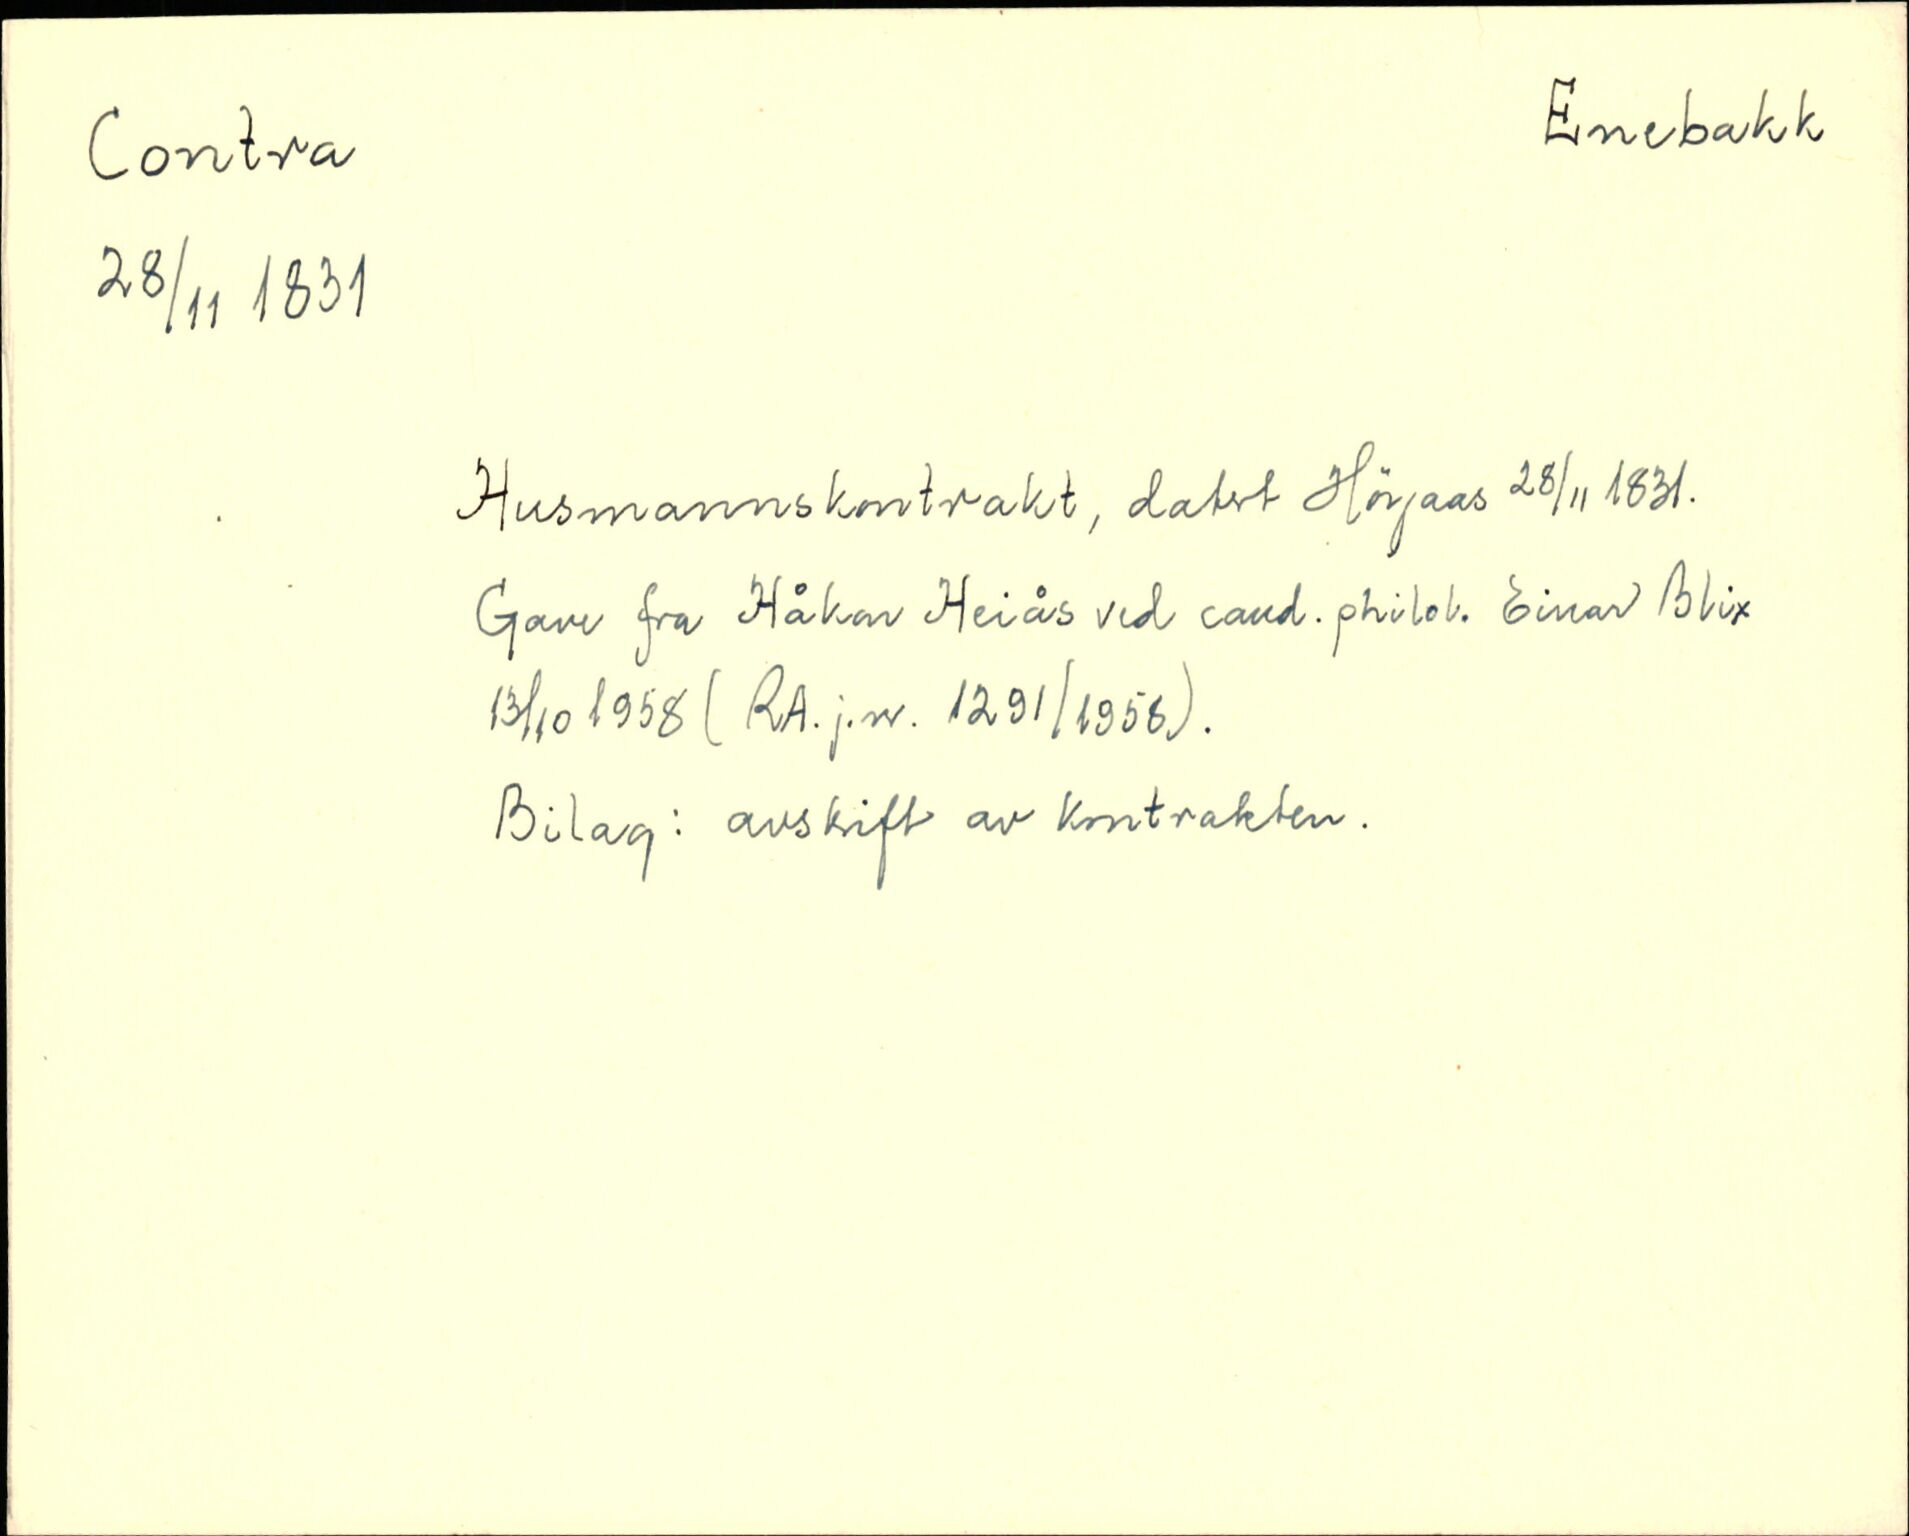 Contra
Enebakk
28/11 1831
Husmannskontrakt, datert Höyaas 28/11 1831.
Gave fra Håkon Heiås ved cand. philol. Einar Blix
13/10 1958 (RA. j.nr. 1291/1958).
Bilag: avskrift av kontrakten.